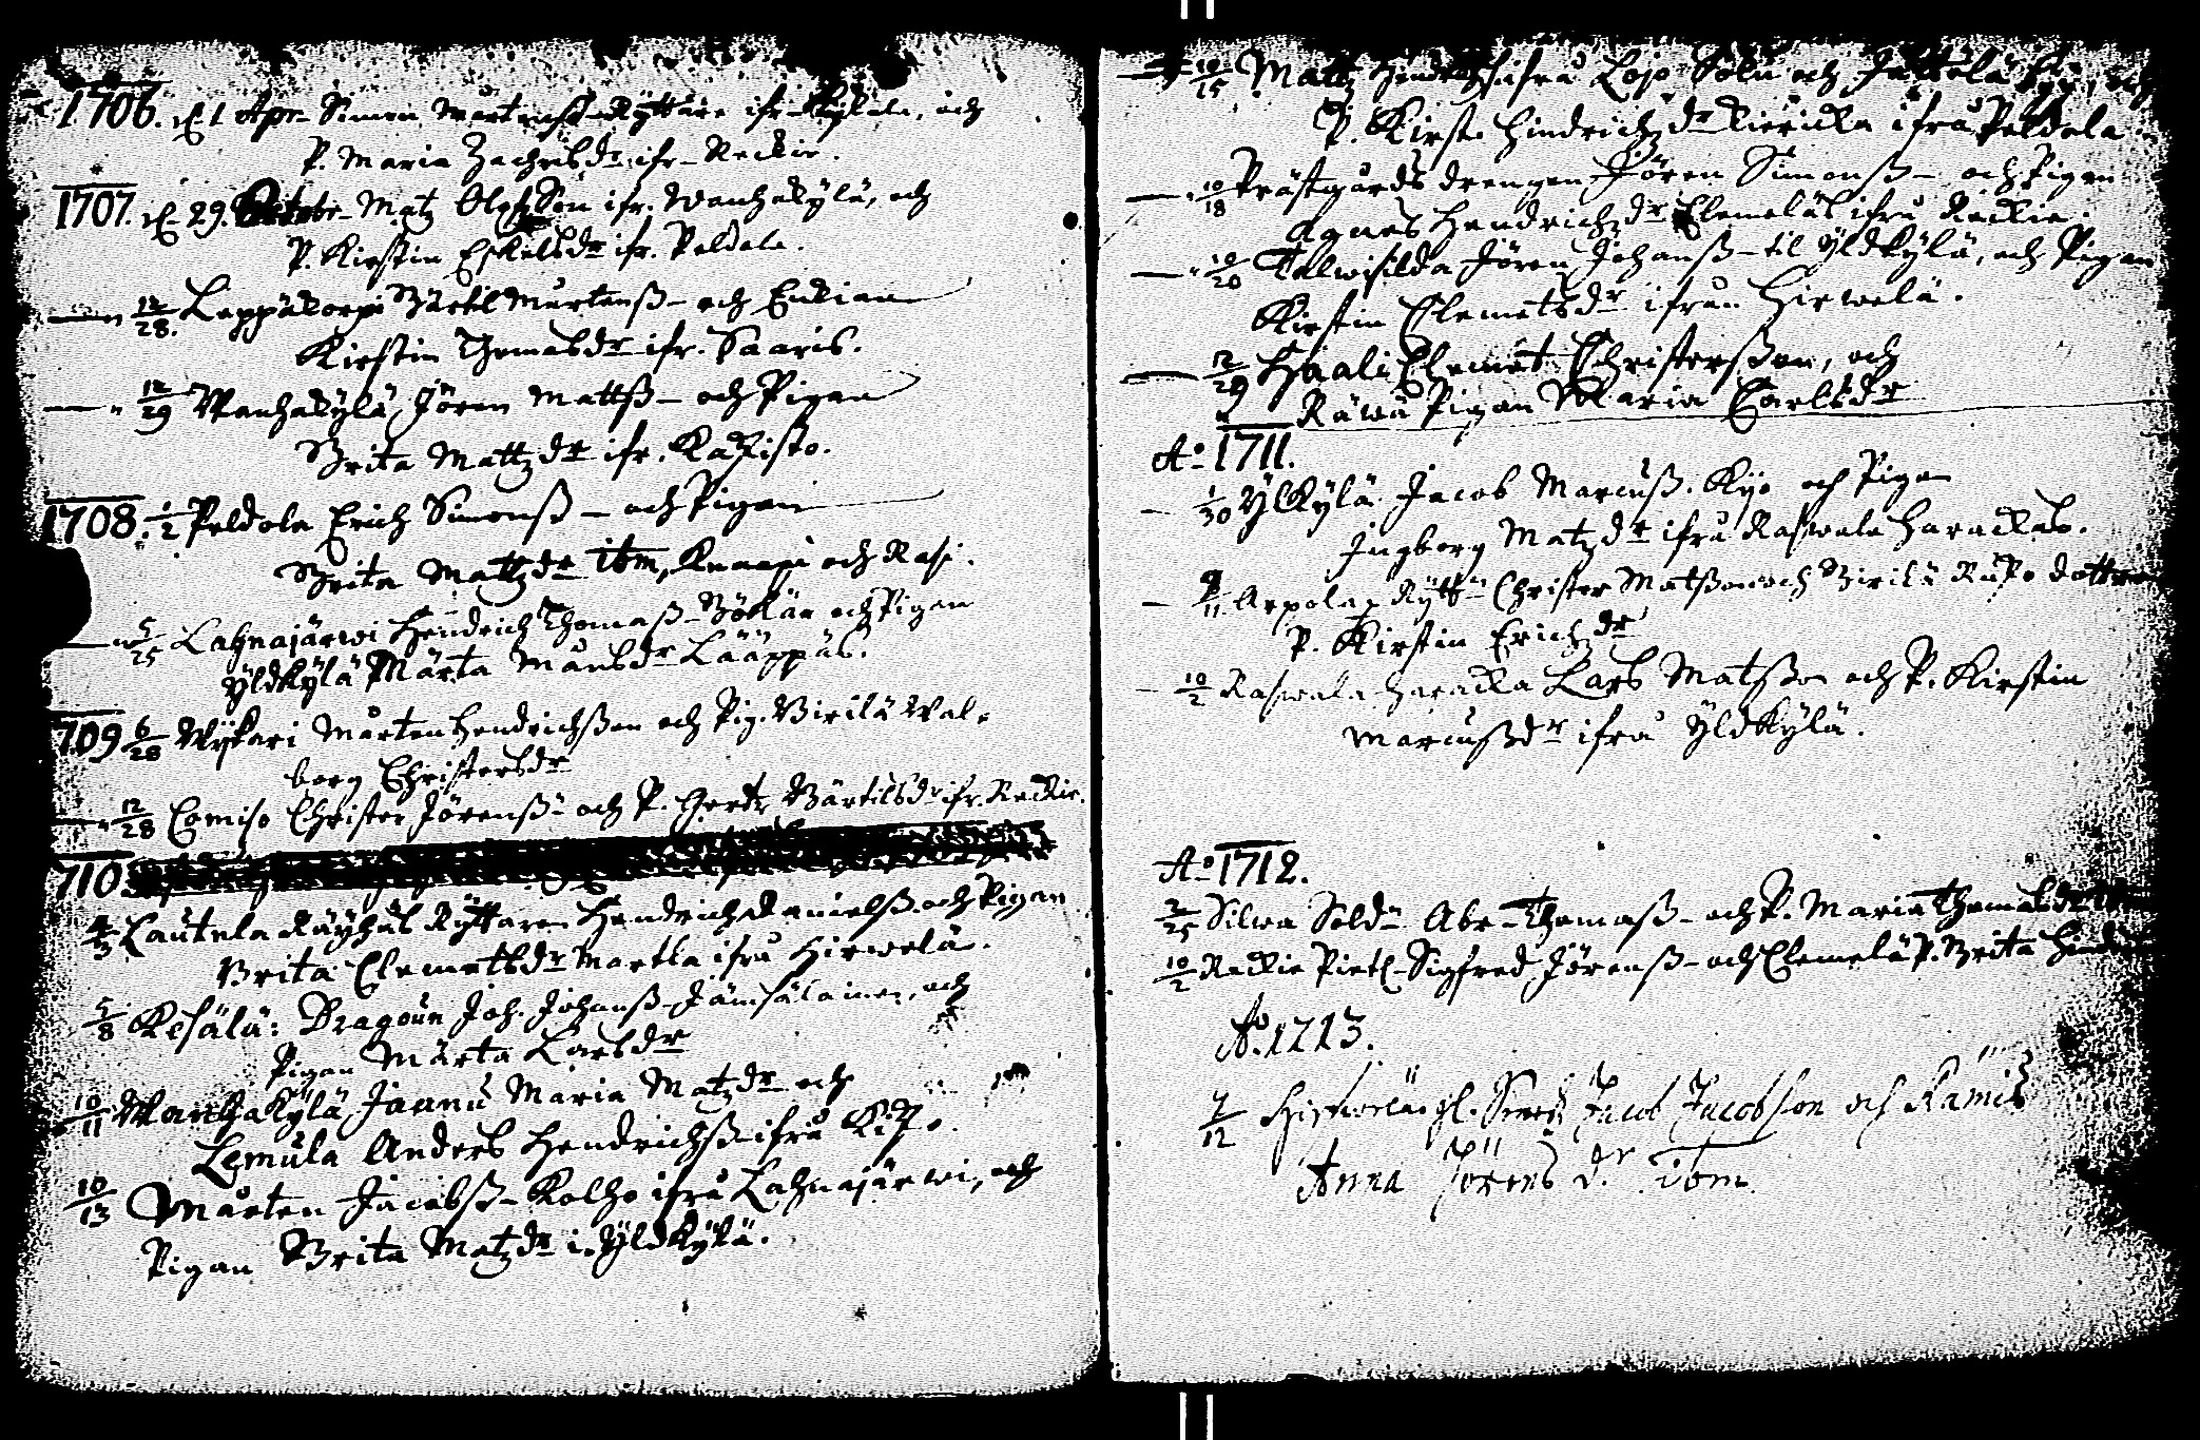 1706. d. 1 Apr. Simon Mårtenss. Ryttare ifr. Kylälä, och
P. Maria Zachrisdr ifr. Reckie.
1707. d. 29. Octobr. Matz Olofsson ifr. Wanhakylä, och
P. Kirstin Eskelsdr ifr. Peldola.
12/28. Leppäkorpi Bärtil Mårtenß- och Enkian
Kirstin Thomasdr ifr. Saaris.
12/29 Wanhakylä Jören Mattß- och Pigan
Brita Mattzdr ifr. Kaxisto.
1708. 1/2 Peldola Erich Simonß- och Pigan
Brita Mattzdr ibm, Knaapi och Rasi.
5/25 Lahnajärwi Hendrich Thomaß- Bökär och Pigan
Yldkylä Märta Månsdr Lääppäs.
1709 6/28 Nykari Mårten Hendrichßon och Pig. Birilä Wal-
borg Christersdr
12/28 Comiso Christer Jörenß- och P. Gertz Bärtilsdr ifr. Reckie.
1710
4/3 Lautela Räyhäs Ryttaren Hendrich Danielß. och Pigan
Brita Clemetsdr Martla ifrå Hirwelä.
5/8 Kesälä: Dragoun Joh. Johanß- Jämsäläinen, och
Pigan Märta Larsdr
10/11 Wanhakylä Jaanu Maria Matzdr och
Lemula Anders Hendrichß- ifrå
10/13 Mårten Jacobß- Kolho ifrå Lahnajärwi, och
Pigan Brita Matzdr i. Yldkylä.
10/15 Mattz ifrå Lojo Solu och
P. Kirst. Hindrichzdr ifrå Peldola
10/18 Prästgårds drengen Jören Simonß- och Pigan
Agnes Hendrichzdr Clemeläs ifrå Reckie.
10/20 Talwisilda Jören Johanß- til Yldkylä, och Pigan
Kirstin Clemetsdr ifrån Hirwelä.
12/29 Haali Clemet Christerßon, och
Räwä Pigan Maria Carlsdr
Ao 1711.
1/30 Ylkylä Jacob Marcuß. Kyö och Pigan
Ingborg Matzdr ifrå Raswala Harackas.
Arpola Rytt. Christer Matßon och Birilä dotter
P. Kirstin Erichzdr
10/2 Raswala Haracka Lars Matßon och P. Kirstin
Marcußdr ifrå Yldkylä.
Ao 1712.
2/25 Silwa Sold. Abr. Thomaß- och P. Maria Thomasdr
10/2 Reckie Pietl. Sigfred Jörenß- och Clemelä P. Brita
Ao. 1713.
4/12 Hirwelä gl. Jacob Jacobson och Rämis
Anna Jörens dr. ibm.